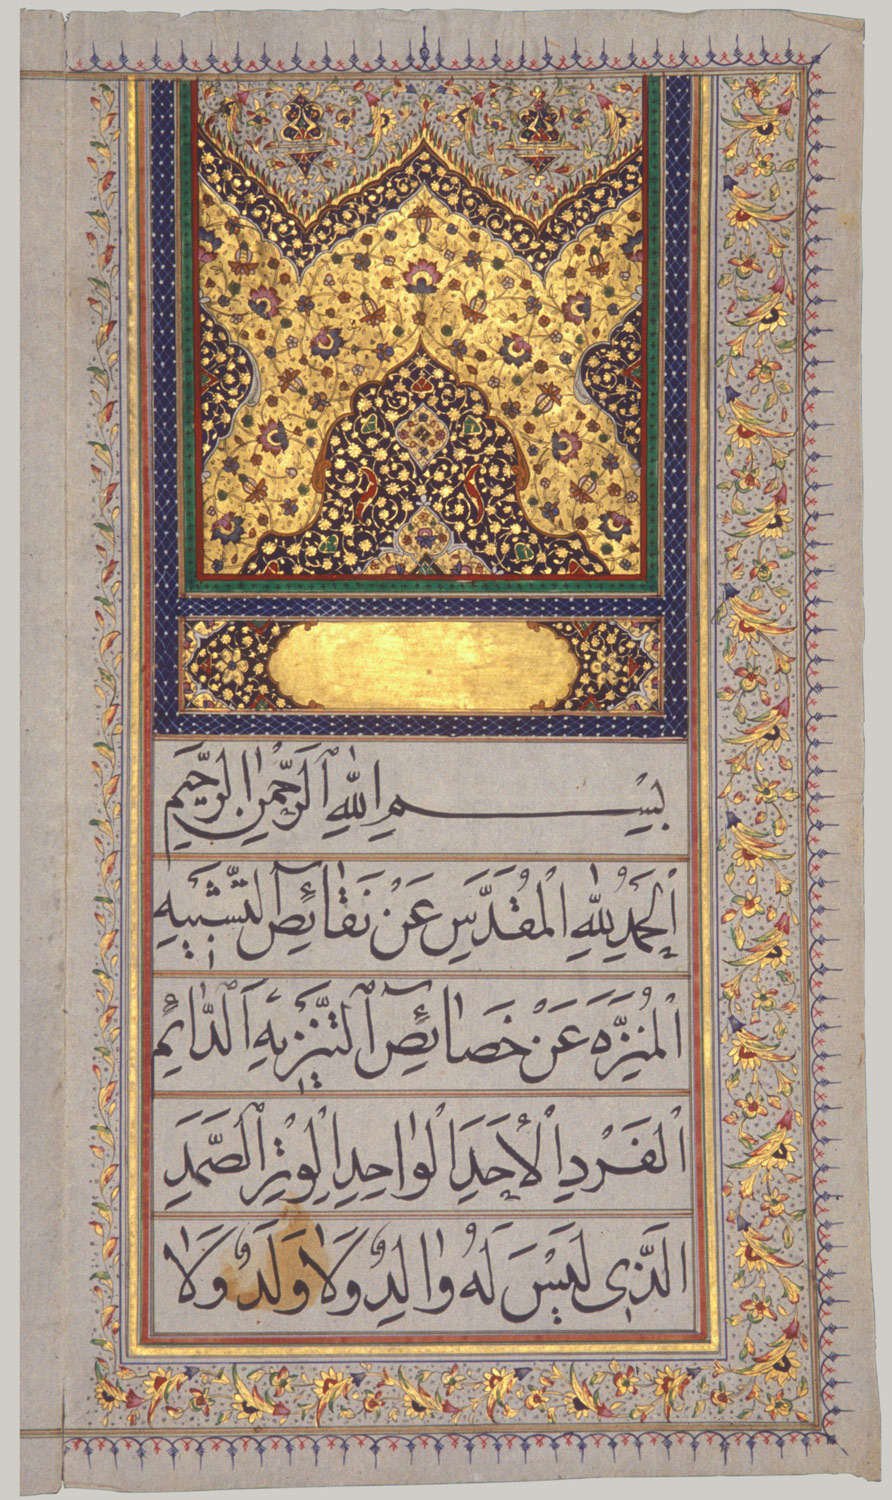 بِسْمِ اللّٰهِ الرَّحْمٰنِ الرَّحِيمِ
اَلْحَمْدُ لِلّٰهِ الْمُقَدَّسِ عَنْ نَقَائِصِ التَّشْبِيهِ
اَلْمُنَزَّهِ عَنْ خَصَائِصِ التَّنْزِيهِ الدَّائِمِ
اَلْفَرْدِ الْأَحَدِ الْوَاحِدِ الْوِتْرِ الصَّمَدِ
الَّذِي لَيْسَ لَهُ وَالِدٌ وَلَا وَلَدٌ وَلَا